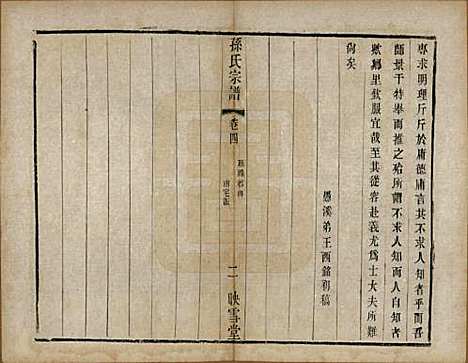 專求明理斤斤於庸德庸言其不求人知者乎而京
師景于特舉而推之殆所謂不求人知而人自知者
歟鄉里欽服宜哉至其從容赴義尤爲士大夫所難
尙矣
愚溪弟王西銘初稿
孫氏宗譜
卷四
二
映雪堂